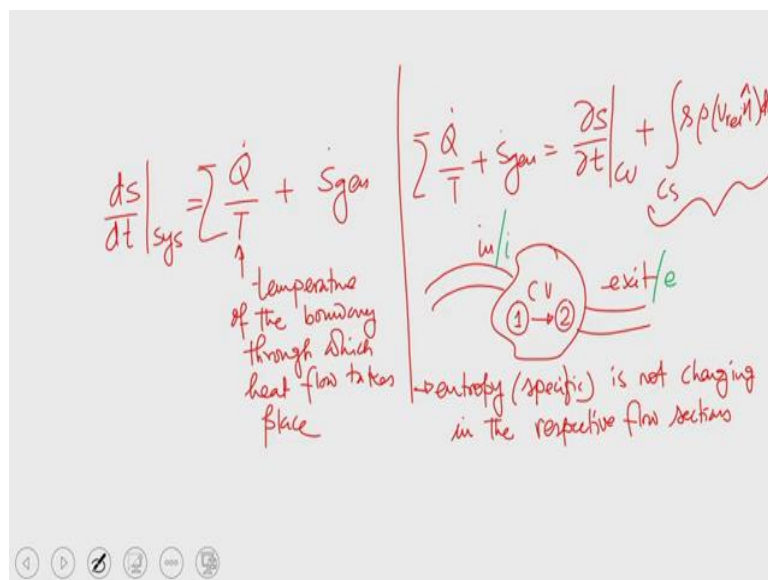 dS/dt|sys = Σ Q̇/T + Ṡgen
temperature
of the boundary
through which
heat flow takes
place
Σ Q̇/T + Ṡgen = ∂S/∂t|CV + ∫CS sρ(Vrel n̂)d
in/i
CV
exit/e
1 → 2
→ entropy (specific) is not changing
in the respective flow sections